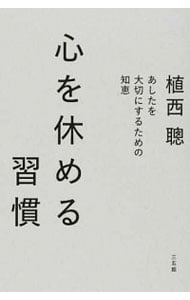 植西聰
あしたを
大切にするための
知恵
心を休める
習慣
三五館